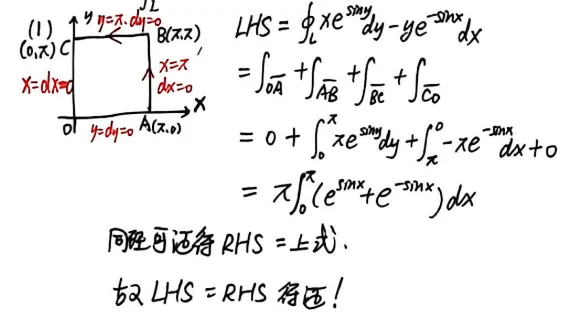 (1)
y
y=π, dy=0
(0,π) C
B(π,π)
x=π
dx=0
x=dx=0
x
0
y=dy=0
A(π,0)
LHS = ∮_L xe^{siny}dy - ye^{-sinx}dx
= ∫_{OA} + ∫_{AB} + ∫_{BC} + ∫_{CO}
= 0 + ∫_0^π πe^{siny}dy + ∫_π^0 -πe^{-sinx}dx + 0
= π∫_0^π (e^{sinx} + e^{-sinx})dx
同理可证得 RHS = 上式.
故 LHS = RHS 得证!